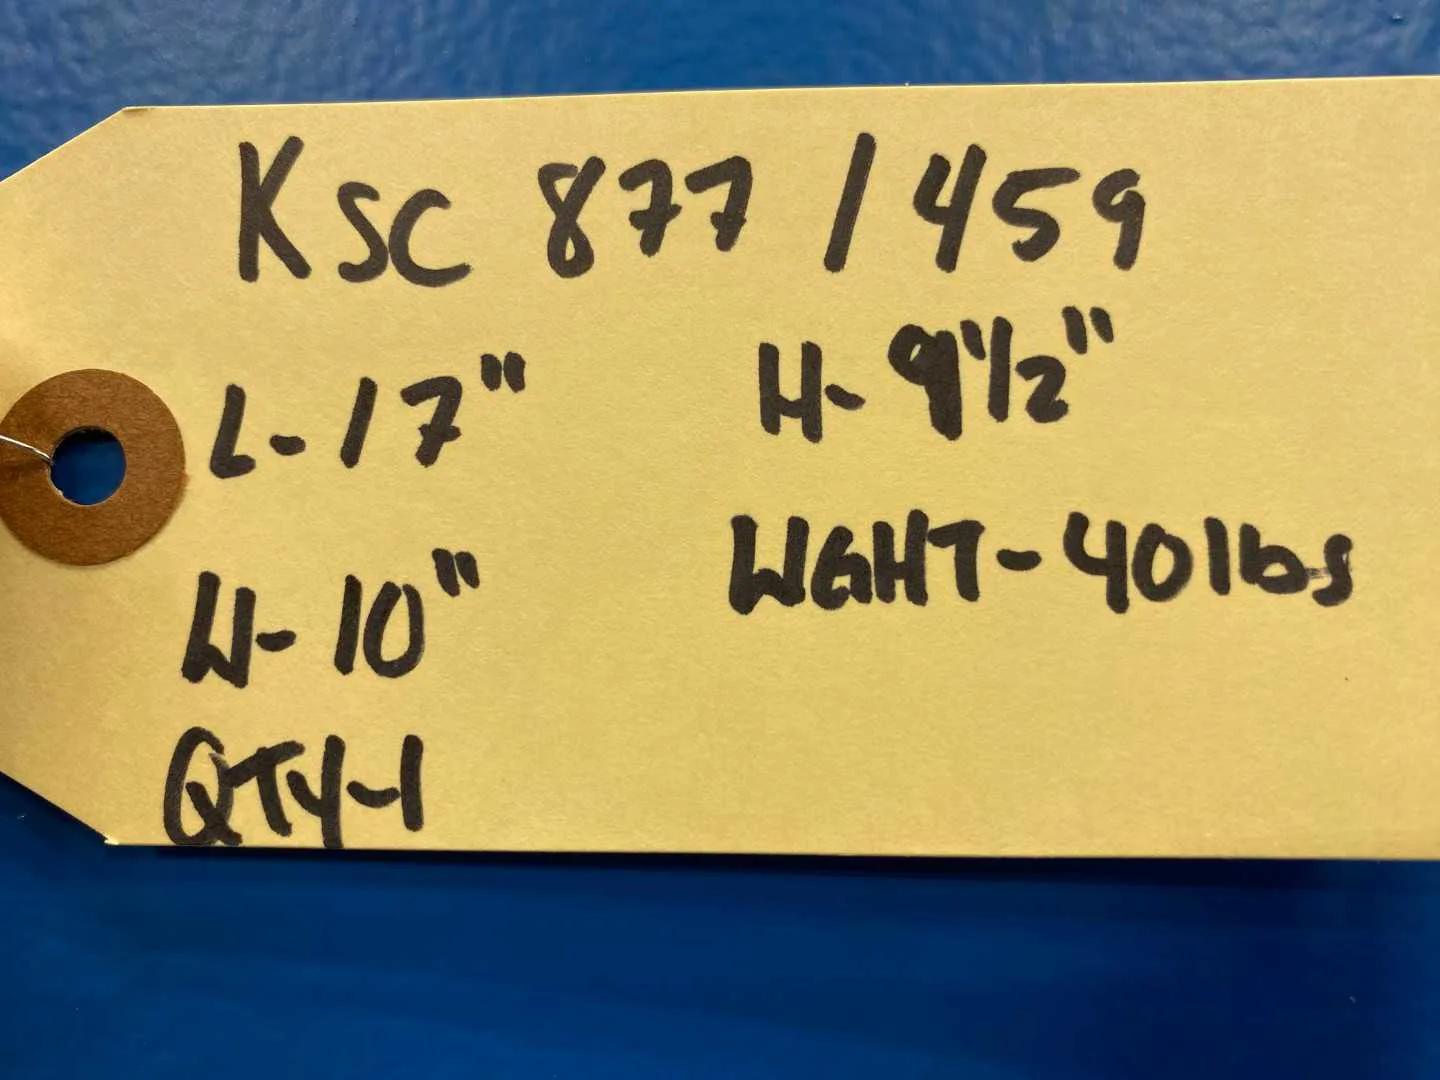 KSC 877 / 459
L-17" H-9 1/2"
W-10" WGHT-40lbs
QTY-1